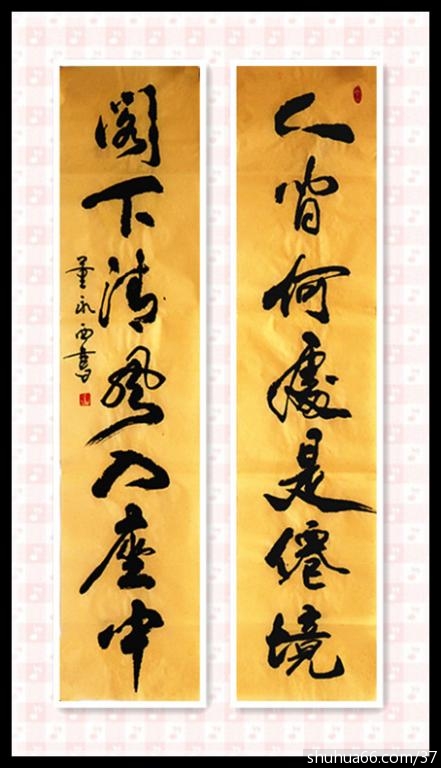 人間何處是僊境
閣下清風入座中
董永西書
shuhua66.com/37